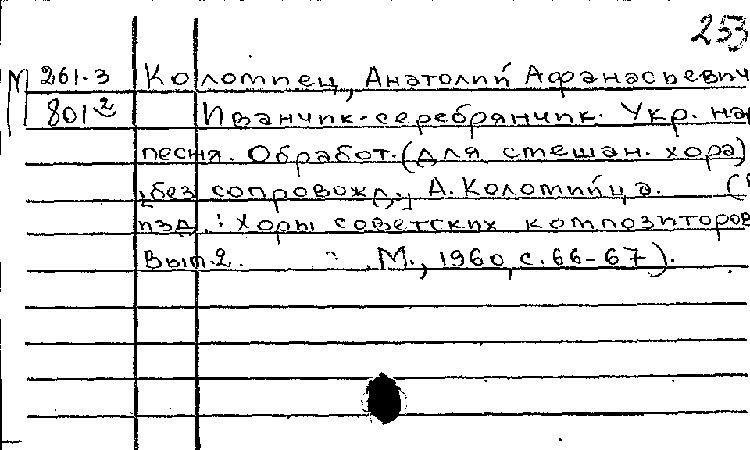 253
N 261-3 Коломиец, Анатолий Афанасьевич
801² Иванчик-серебрянчик. Укр. на
песня. Обработ. (для смешан. хора)
без сопровожд., А. Коломийца. (
изд.: Хоры советских композиторов
Вып 2. М., 1960, с. 66-67).